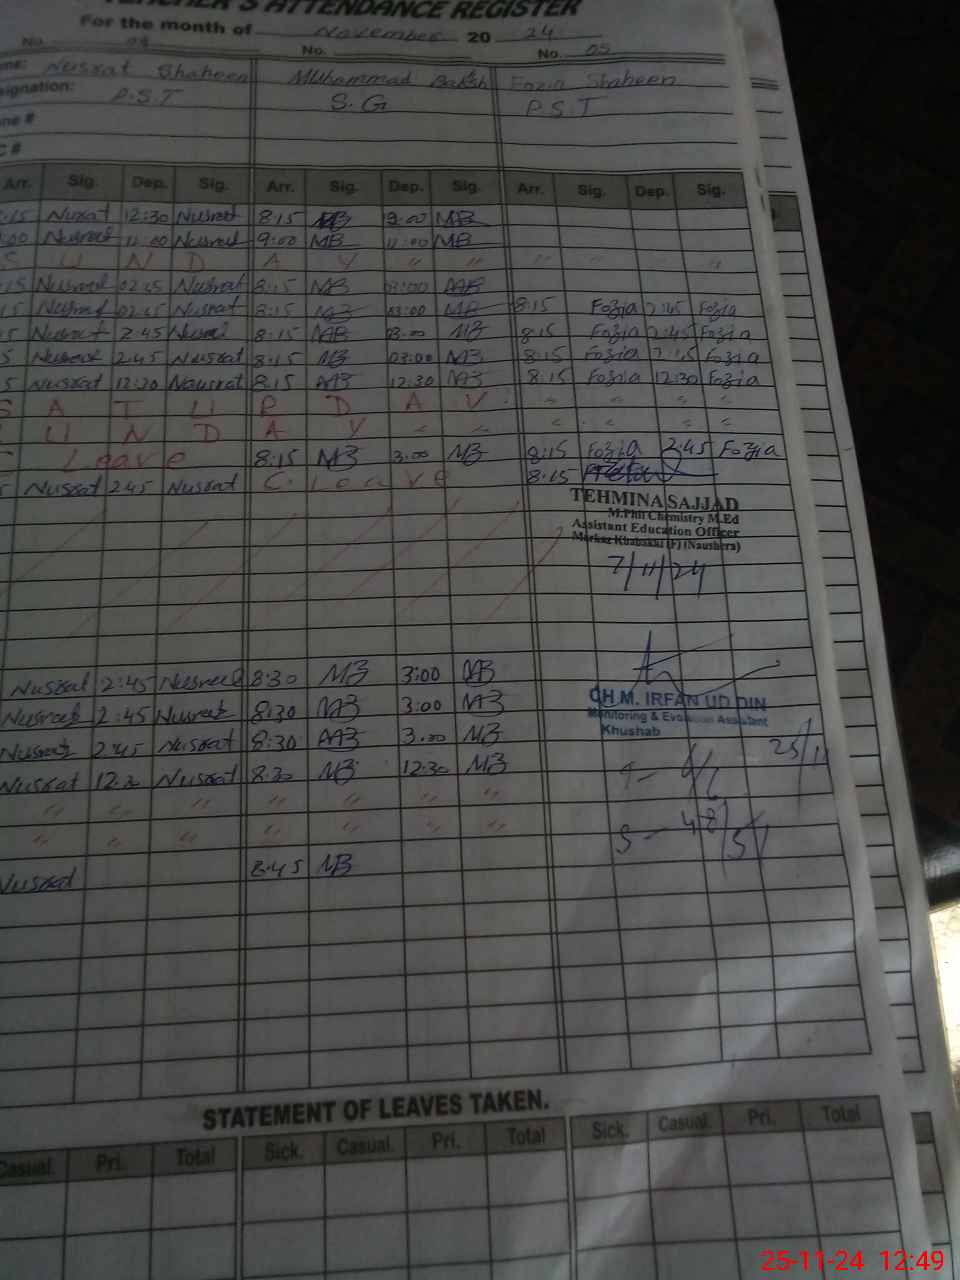 TEACHER'S ATTENDANCE REGISTER
For the month of November 20 24
No. No. No. 05
Nusrat Shaheen Muhammad Baksh Fozia Shaheen
signation: P.S.T S.G P.S.T
ne #
C #
Arr. Sig. Dep. Sig. Arr. Sig. Dep. Sig. Arr. Sig. Dep. Sig.
:15 Nusrat 12:30 Nusrat 8:15 MB MB
:00 Nusrat 11:00 Nusrat 9:00 MB 11:00 MB
S U N D A Y " " " " "
:15 Nusrat 02:45 Nusrat 8:15 MB 03:00 MB
15 Nusrat 02:45 Nusrat 8:15 MB 03:00 MB 8:15 Fozia 2:45 Fozia
5 Nusrat 2:45 Nusrat 8:15 MB 03:00 MB 8:15 Fozia 2:45 Fozia
5 Nusrat 2:45 Nusrat 8:15 MB 03:00 MB 8:15 Fozia 2:45 Fozia
5 Nusrat 12:30 Nusrat 8:15 MB 12:30 MB 8:15 Fozia 12:30 Fozia
S A T U R D A Y " " " "
S U N D A Y " " " " " "
Leave 8:15 MB 3:00 MB 8:15 Fozia 2:45 Fozia
5 Nusrat 2:45 Nusrat C. leave 8:15
TEHMINA SAJJAD
M.Phil Chemistry M.Ed
Assistant Education Officer
Markaz Khabakki (F) (Naushera)
7/11/24
Nusrat 2:45 Nusrat 8:30 MB 3:00 MB
Nusrat 2:45 Nusrat 8:30 MB 3:00 MB
CH M. IRFAN UD DIN
Monitoring & Evaluation Assistant
Khushab
Nusrat 2:45 Nusrat 8:30 MB 3:00 MB
25/11
Nusrat 12:30 Nusrat 8:30 MB 12:30 MB
" " " " " " " "
" " " " " " " "
Nusrat 8:45 MB
STATEMENT OF LEAVES TAKEN.
Casual. Pri. Total Sick. Casual. Pri. Total Sick. Casual. Pri. Total
25-11-24 12:49